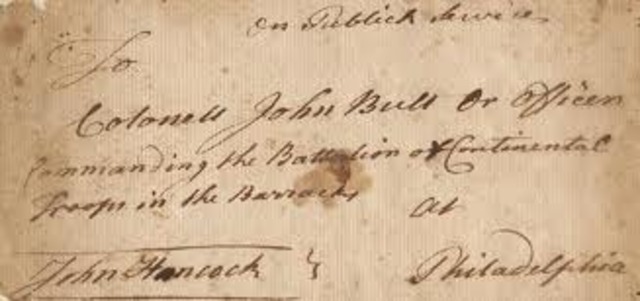 On Publick Service
To
Colonell John Bull Or Officer
Commanding the Battalion of Continental
Troops in the Barracks
At
John Hancock
Philadelphia